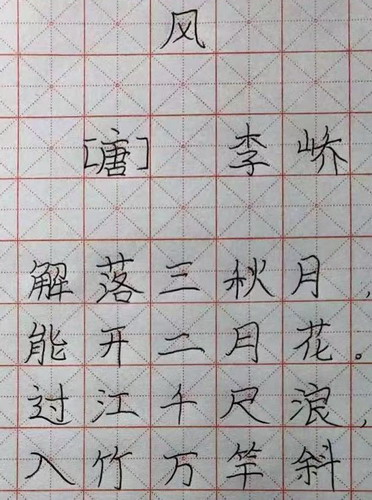 风
[唐] 李峤
解落三秋月,
能开二月花。
过江千尺浪,
入竹万竿斜